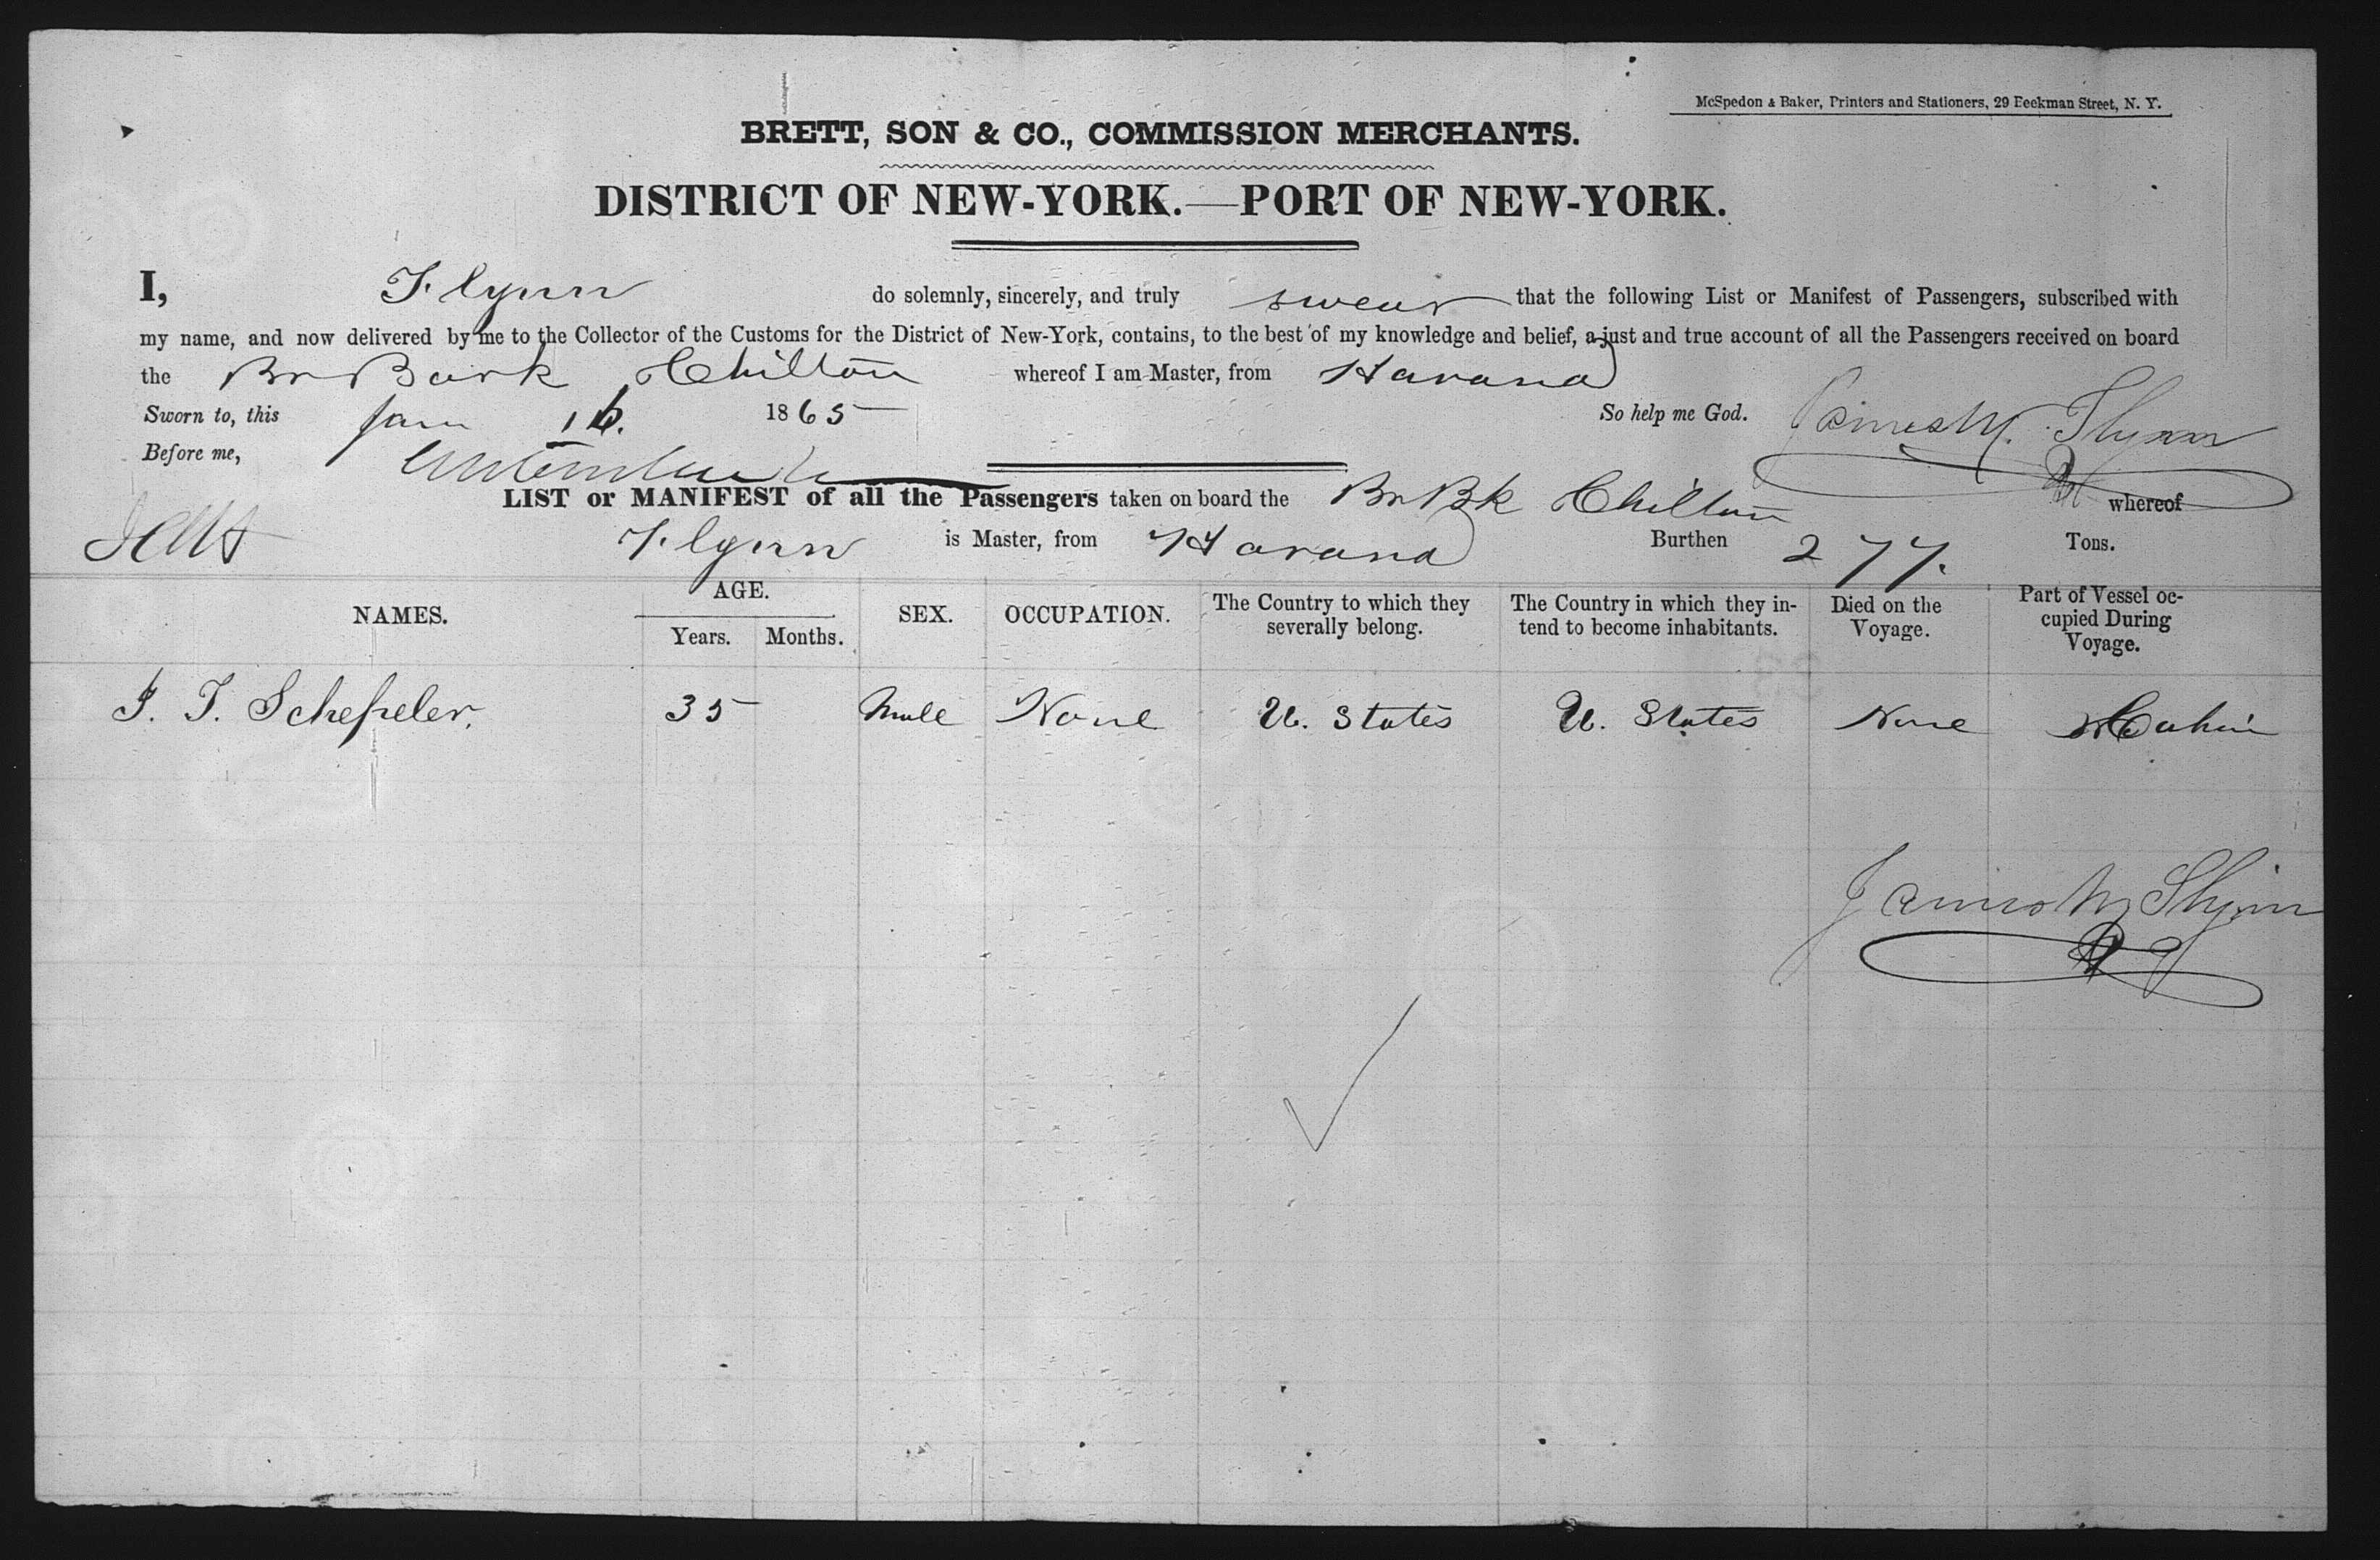 McSpedon & Baker, Printers and Stationers, 29 Beekman Street, N. Y.
BRETT, SON & CO., COMMISSION MERCHANTS.
DISTRICT OF NEW-YORK.—PORT OF NEW-YORK.
I, Flynn do solemnly, sincerely, and truly swear that the following List or Manifest of Passengers, subscribed with
my name, and now delivered by me to the Collector of the Customs for the District of New-York, contains, to the best of my knowledge and belief, a just and true account of all the Passengers received on board
the Br Bark Chilton whereof I am Master, from Havana
Sworn to, this Jan 16. 1865 So help me God. James M. Flynn
Before me,
LIST or MANIFEST of all the Passengers taken on board the Br Bk Chilton whereof
Flynn is Master, from Havana Burthen 277. Tons.
NAMES. AGE. Years. Months. SEX. OCCUPATION. The Country to which they severally belong. The Country in which they intend to become inhabitants. Died on the Voyage. Part of Vessel occupied During Voyage.
J. T. Schepeler. 35 Male None U. States U. States None Cabin
James M Flynn